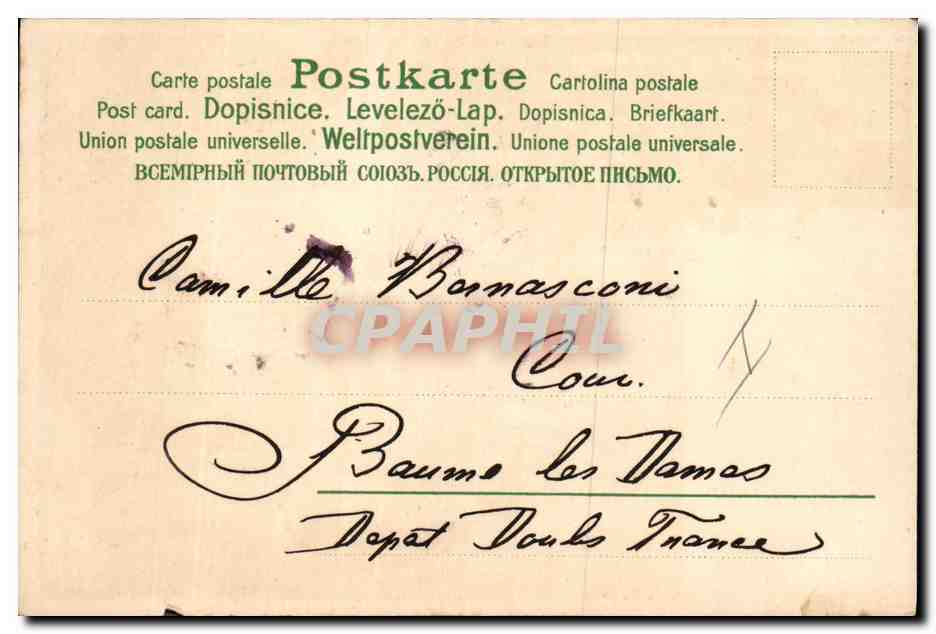 Carte postale Postkarte Cartolina postale
Post card. Dopisnice. Levelező-Lap. Dopisnica. Briefkaart.
Union postale universelle. Weltpostverein. Unione postale universale.
ВСЕМІРНЫЙ ПОЧТОВЫЙ СОЮЗЪ. РОССІЯ. ОТКРЫТОЕ ПИСЬМО.
Camille Bernasconi
CPAPHIL
Cour.
Baume les Dames
Depat Doubs France